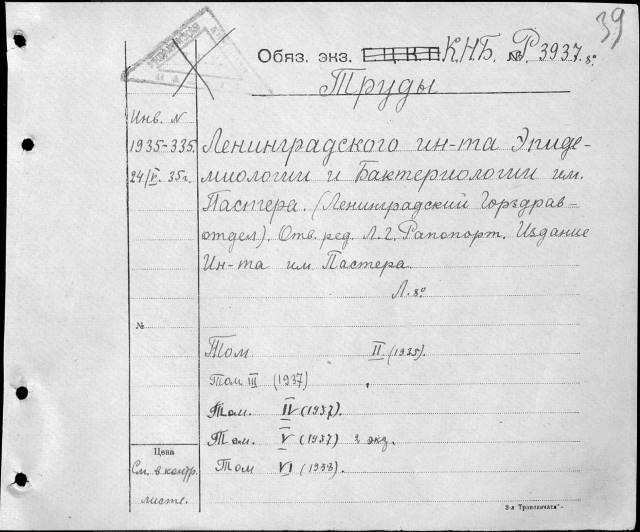 39
Обяз. экз. Е.Ц.К.П К.Н.Б. № Р 3937. 8°
Труды
Инв. N
1935-335.
24/V. 35г.
Ленинградского ин-та Эпиде-
миологии и Бактериологии им.
Пастера. (Ленинградский Горздрав-
отдел). Отв. ред. Л. Г. Рапопорт. Издание
Ин-та им Пастера.
Л. 8°
№
Том II (1935).
Том III (1937)
Том. IV (1937).
Том. V (1937) 2 экз.
Том VI (1938)
Цена
См. в контр.
листе.